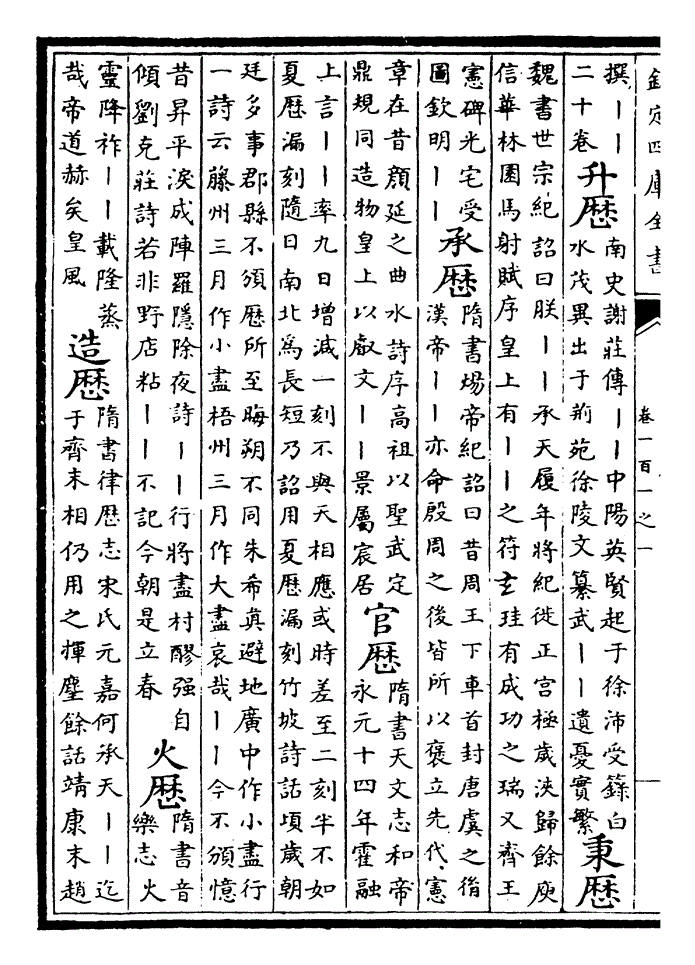 欽定四庫全書
卷一百一之一
撰丨丨
二十卷
升歴
南史謝莊傳丨丨中陽英賢起于徐沛受籙白
水茂異出于荆苑徐陵文纂武丨丨遺憂實繁
秉歴
魏書世宗紀詔曰朕丨丨承天履年將紀徙正宫極歲浹歸餘庾
信華林園馬射賦序皇上有丨丨之符玄珪有成功之瑞又齊王
憲碑光宅受
圖欽明丨丨
承歴
隋書煬帝紀詔曰昔周王下車首封唐虞之胤
漢帝丨丨亦命殷周之後皆所以褒立先代憲
章在昔顔延之曲水詩序高祖以聖武定
鼎規同造物皇上以叡文丨丨景屬宸居
官歴
隋書天文志和帝
永元十四年霍融
上言丨丨率九日增減一刻不與天相應或時差至二刻半不如
夏歴漏刻隨日南北為長短乃詔用夏歴漏刻竹坡詩話頃歲朝
廷多事郡縣不頒歴所至晦朔不同朱希真避地廣中作小盡行
一詩云藤州三月作小盡梧州三月作大盡哀哉丨丨今不頒憶
昔昇平淚成陣羅隱除夜詩丨丨行將盡村醪强自
傾劉克莊詩若非野店粘丨丨不記今朝是立春
火歴
隋書音
樂志火
靈降祚丨丨載隆蒸
哉帝道赫矣皇風
造歴
隋書律歴志宋氏元嘉何承天丨丨迄
于齊末相仍用之揮麈餘話靖康末趙